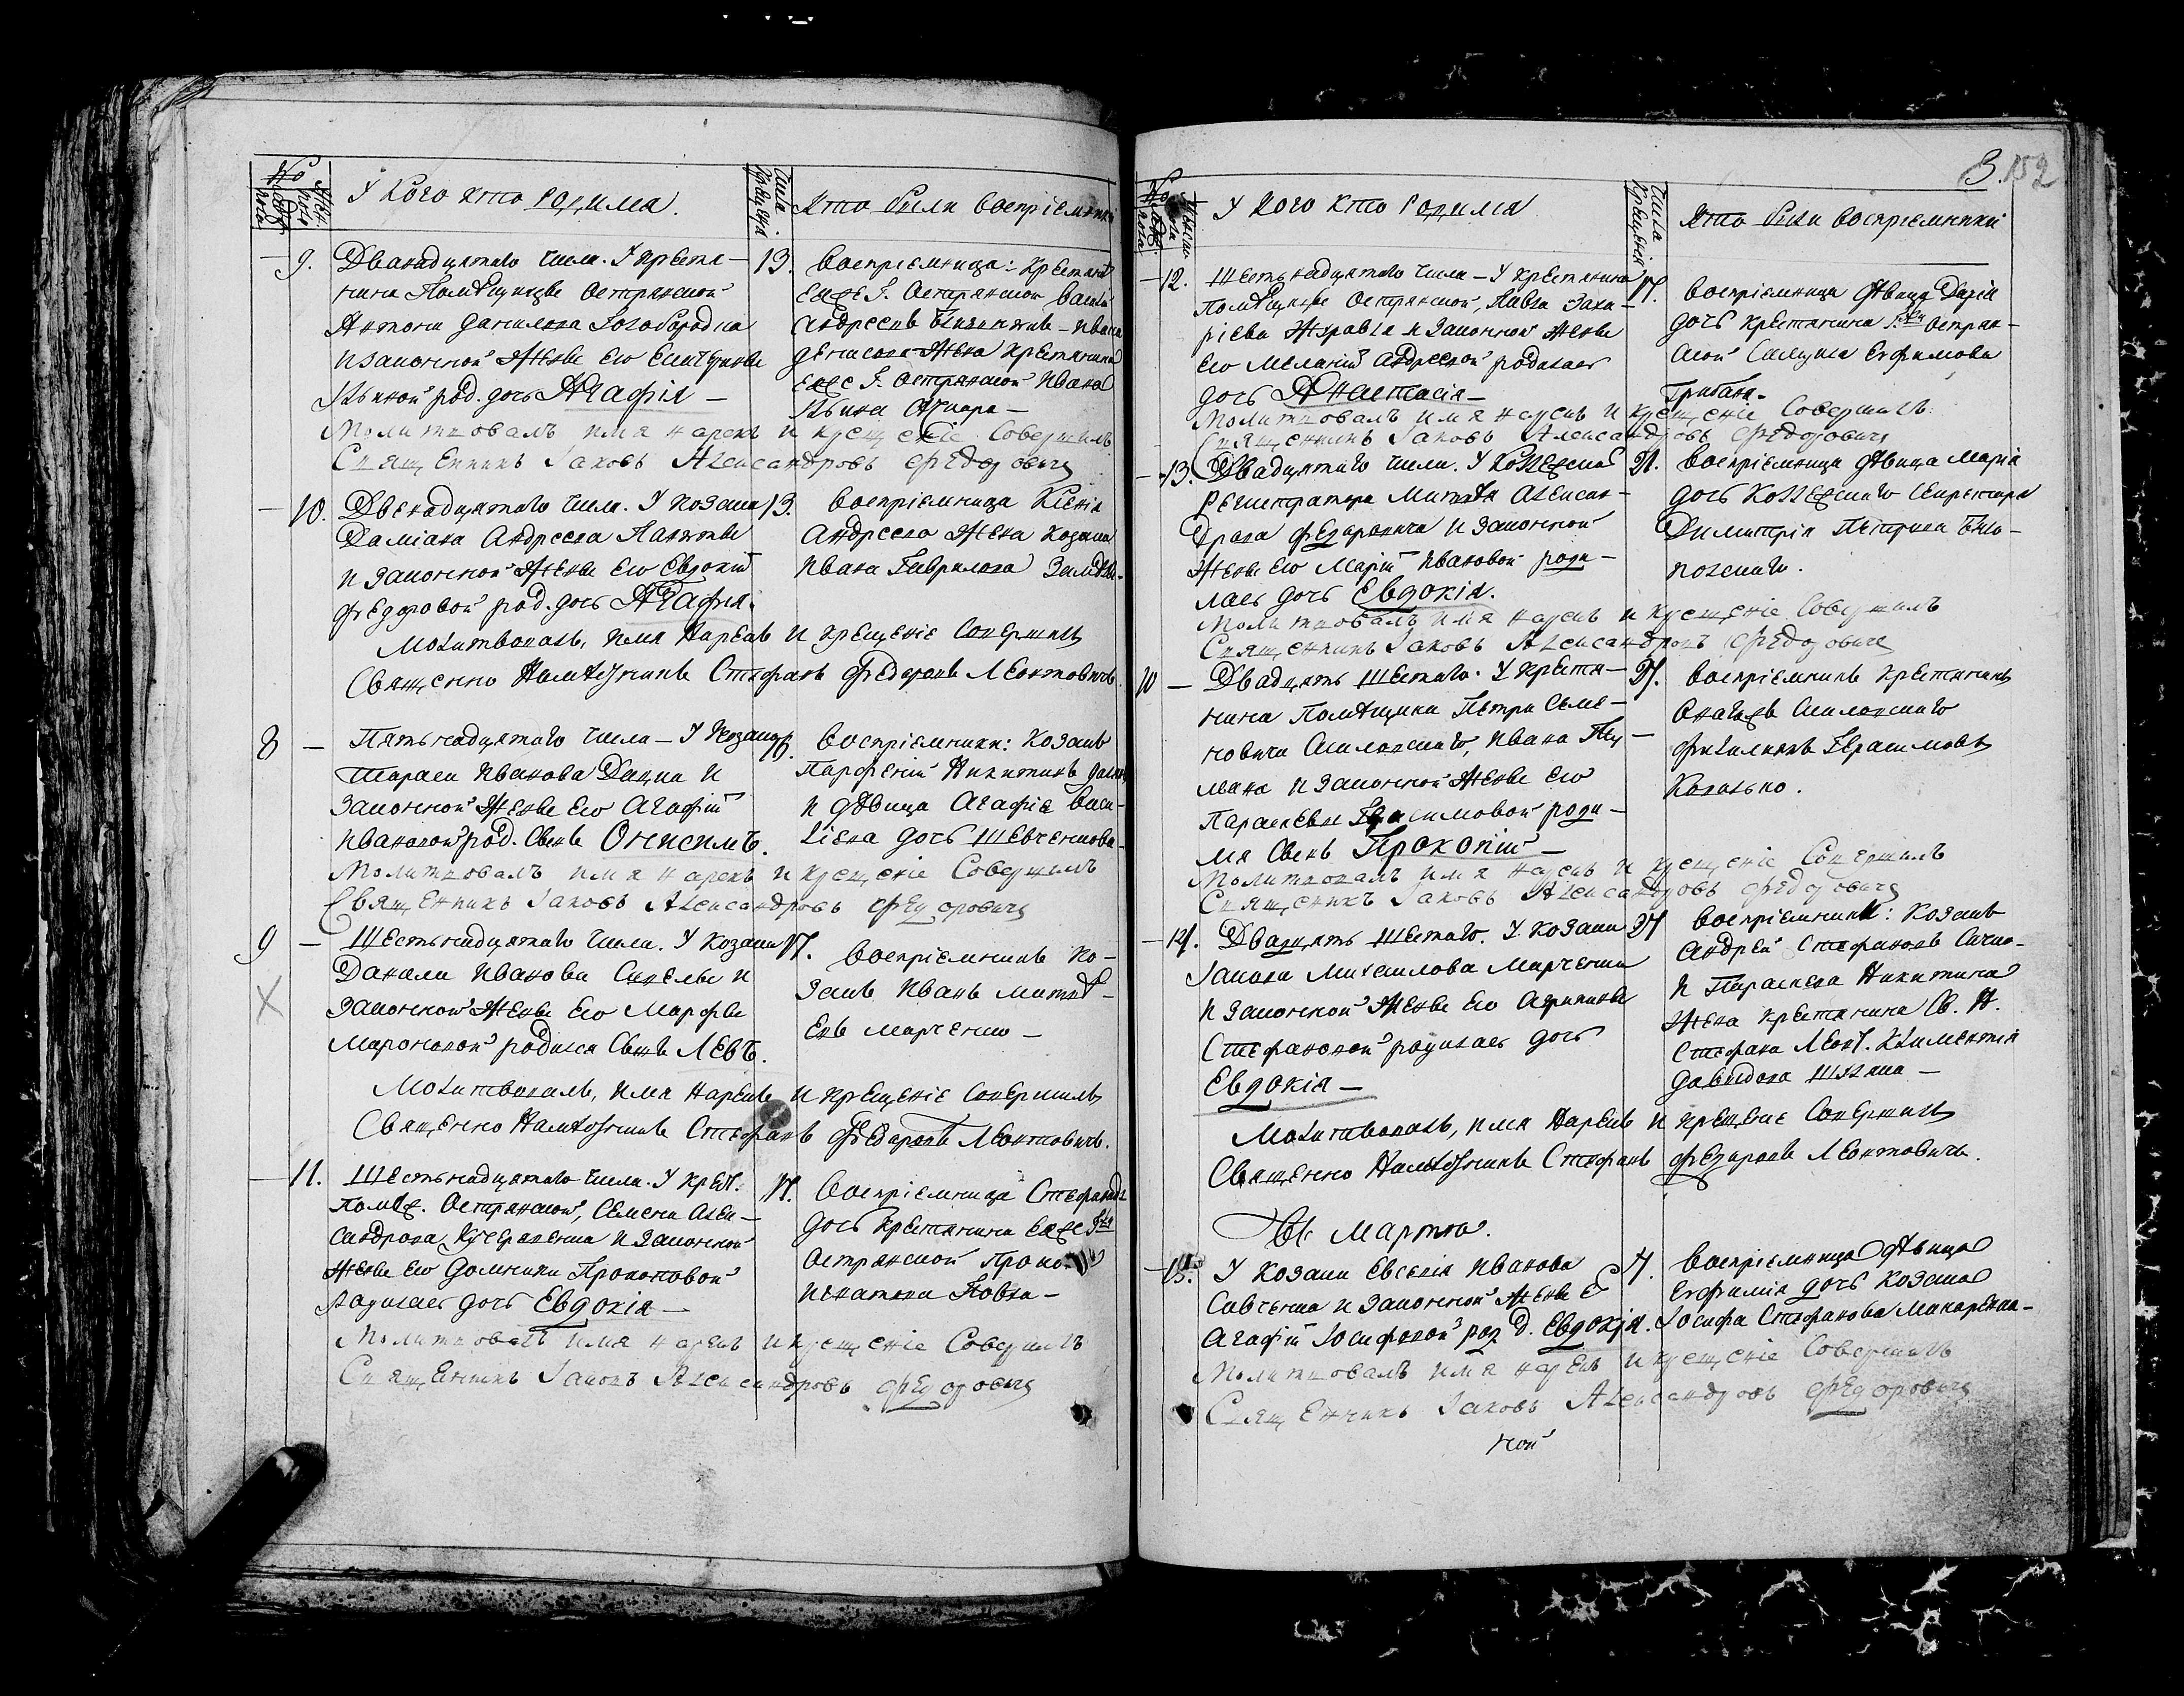 №
Мужеска пола
Женска пола
У кого кто родился.
Числа крещенія
Кто были воспріемники
9. Двенадцятаго числа. У крестя-
нина Помѣщицѣ Остранской
Антона Данилова
и законной жены его
род. дочь Агафія —
13. Воспріемница: крестян.
еяже Г. Остранской
Андреевъ
Денисова жена крестянина
еяже Г. Остранской Ивана
Молитвовалъ имя нарекъ и крещеніе совершилъ
Священникъ Іаковъ Александровъ Федоровичъ
10. Двенадцятаго числа. У козака
Даміана Андреева
и законной жены его Евдокіи
Федоровой род. дочь Агафія.
13. Воспріемница Ксенія
Андреева жена козака
Ивана Гаврилова
Молитвовалъ, имя нарекъ и крещеніе совершилъ
Священно Намѣстникъ Стефанъ Федоровъ Леонтовичъ.
8 — Пятьнадцятаго числа — У козака
Тараса Иванова Дацка и
законной жены его Агафіи
Ивановой род. сынъ Онисимъ.
16. Воспріемники: козакъ
Парфеній Никитинъ
и дѣвица Агафія Васи-
ліева дочь Шевченкова —
Молитвовалъ имя нарекъ и крещеніе совершилъ
Священникъ Іаковъ Александровъ Федоровичъ
9 — Шестьнадцятаго числа. У козака
Данила Иванова и
законной жены его Марфы
Мароновой родился сынъ Левъ.
17. Воспріемникъ ко-
закъ Иванъ Матвѣ-
евъ Марченко —
Х
Молитвовалъ, имя нарекъ и крещеніе совершилъ
Священно Намѣстникъ Стефанъ Федоровъ Леонтовичъ.
11. Шестьнадцятаго числа. У крест.
Помѣщ. Остранской, Семена Алек-
сандрова Кучеренка и законной
жены его Домники Прокоповой
родилась дочь Евдокія —
17. Воспріемница
дочь крестянина еяже Г-жи
Остранской
Игнатова
Молитвовалъ имя нарекъ и крещеніе совершилъ
Священникъ Іаковъ Александровъ Федоровичъ
3. 152
№
Мужеска пола
Женска пола
У кого кто родился
Числа крещенія
Кто были воспріемники
12. Шестьнадцятаго числа — У крестянина
Помѣщицы Остранской, Павла Заха-
ріева Журавля и законной жены
его Меланіи Андреевой родилась
дочь Анастасія —
17. Воспріемница дѣвица Дарія
дочь крестянина Г-жи Остран-
ской Евфимова
Грибана.
Молитвовалъ имя нарекъ и крещеніе совершилъ
Священникъ Іаковъ Александровъ Федоровичъ
13. Двадцятаго числа. У Коллежска
Регистратора Матвѣя Алексан-
дрова Федоровича и законной
жены его Маріи Ивановой роди-
лась дочь Евдокія.
21. Воспріемница дѣвица Марія
дочь Коллежскаго Секретара
Димитрія Петрова
Молитвовалъ имя нарекъ и крещеніе совершилъ
Священникъ Іаковъ Александровъ Федоровичъ
10 — Двадцять шестаго. У крестя-
нина Помѣщика Петра Семе-
новича
и законной жены его
Параскевы Герасимовой роди-
лся сынъ Прокопій —
27. Воспріемникъ крестянинъ
Онагожъ
Герасимовъ
Молитвовалъ имя нарекъ и крещеніе совершилъ
Священникъ Іаковъ Александровъ Федоровичъ
14. Двадцять шестаго. У козака
Іакова Михаилова Марченка
и законной жены его
Стефановой родилась дочь
Евдокія —
27 Воспріемники: козакъ
Андрей Стефановъ
и Параскева Никитина
жена крестянина Св. Н.
Стефана Леонт. Климентія
Давидова
Молитвовалъ, имя нарекъ и крещеніе совершилъ
Священно Намѣстникъ Стефанъ Федоровъ Леонтовичъ.
Въ Мартѣ.
15. У козака Евсевія Иванова
Савченка и законной жены Е
Агафіи Іосифовой род д. Евдокія.
4. Воспріемница дѣвица
Евфимія дочь козака
Іосифа Стефанова Макаренка —
Молитвовалъ имя нарекъ и крещеніе совершилъ
Священникъ Іаковъ Александровъ Федоровичъ